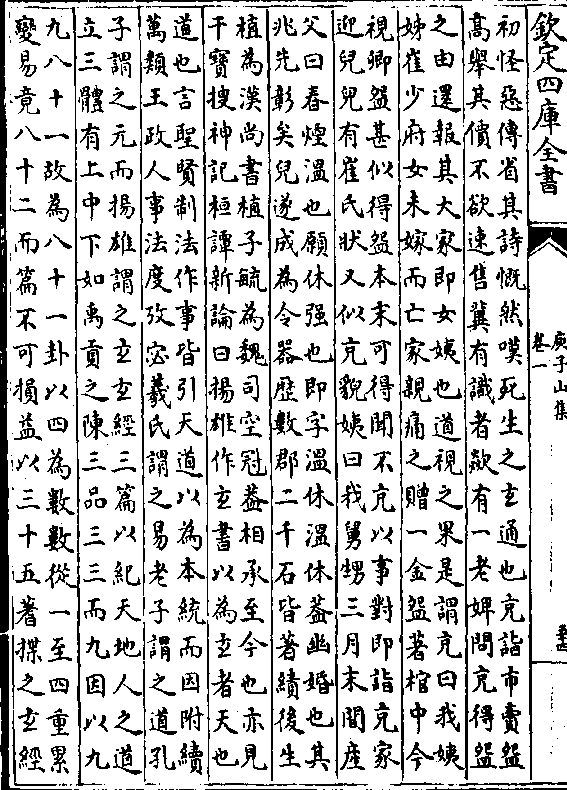 欽定四庫全書
庾子山集
卷一
初怪惡傳省其詩慨然嘆死生之玄通也充詣市賣盌
高舉其價不欲速售冀有識者歘有一老婢問充得盌
之由還報其大家即女姨也道視之果是謂充曰我姨
姊崔少府女未嫁而亡家親痛之贈一金盌著棺中今
視卿盌甚似得盌本末可得聞不充以事對即詣充家
迎兒兒有崔氏狀又似充貌姨曰我舅甥三月末間產
父曰春煙溫也願休强也即字溫休溫休蓋幽婚也其
兆先彰矣兒遂成為令器歷數郡二千石皆著績後生
植為漢尚書植子毓為魏司空冠蓋相承至今也亦見
干寶搜神記桓譚新論曰揚雄作玄書以為玄者天也
道也言聖賢制法作事皆引天道以為本統而因附續
萬類王政人事法度攷宓羲氏謂之易老子謂之道孔
子謂之元而揚雄謂之玄玄經三篇以紀天地人之道
立三體有上中下如禹貢之陳三品三三而九因以九
九八十一故為八十一卦以四為數數從一至四重累
變易竟八十二而篇不可損益以三十五蓍揲之玄經